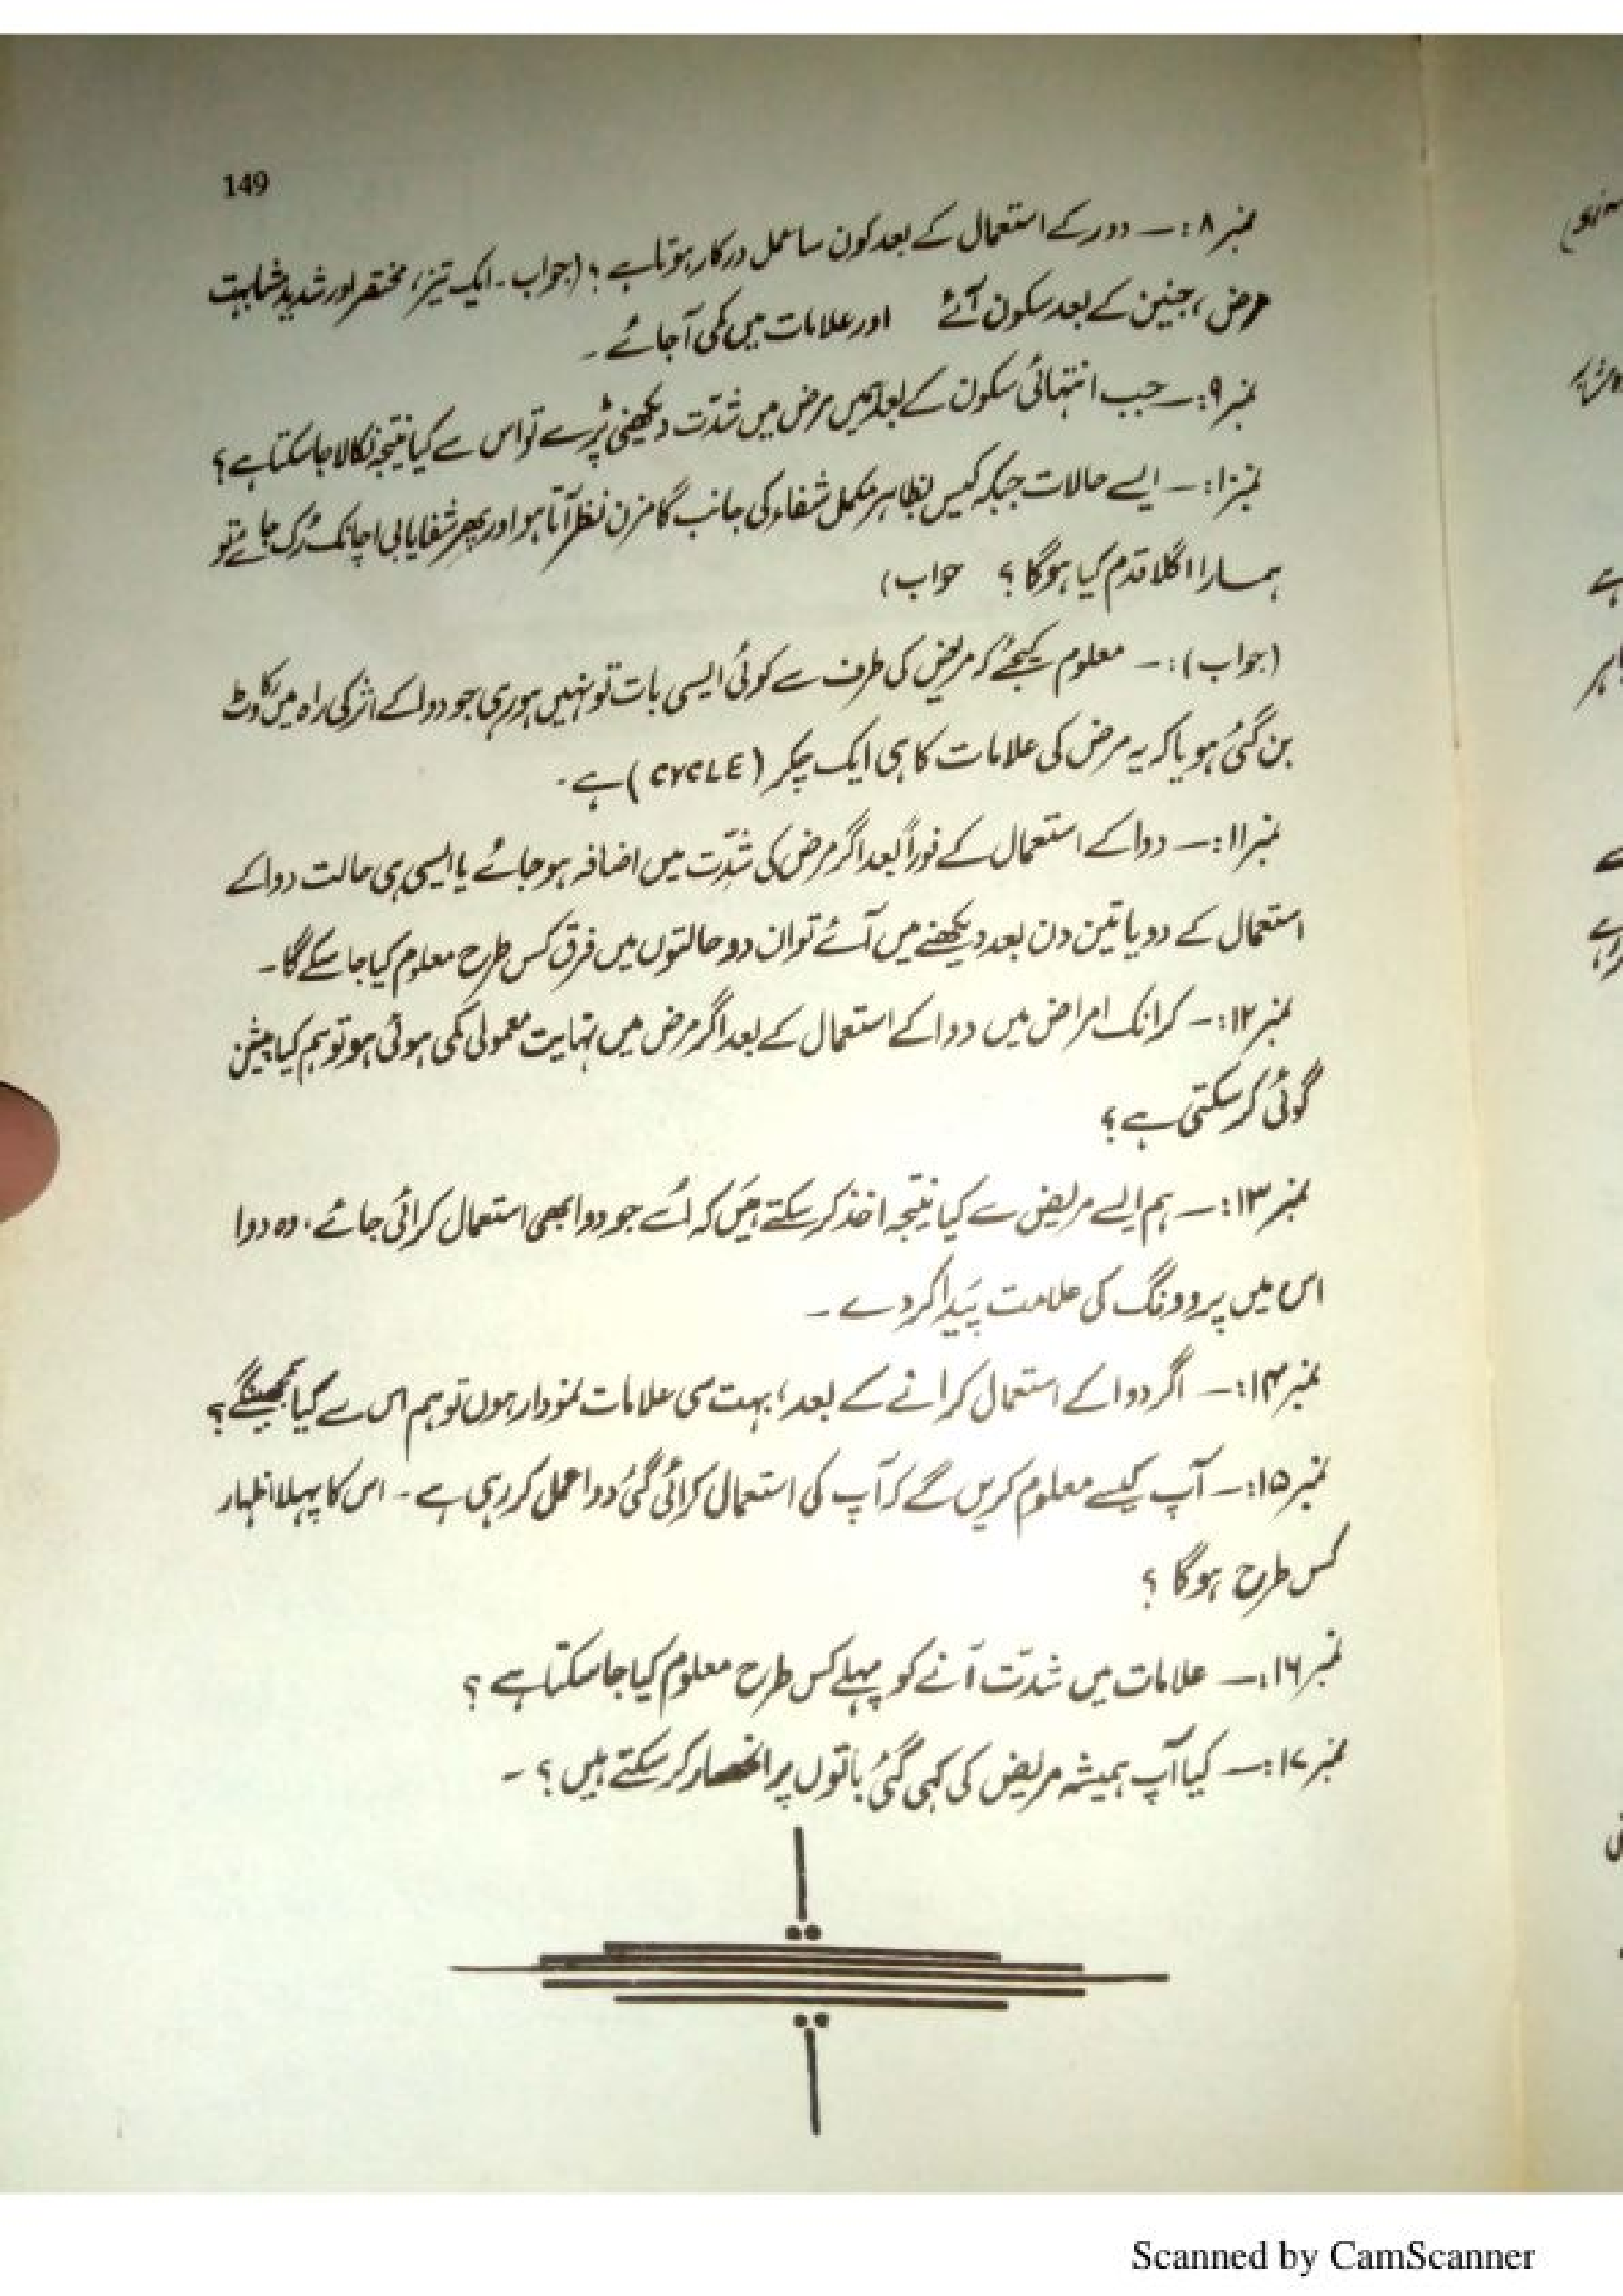 149
نمبر ۸:۔ دور کے استعمال کے بعد کون سا عمل درکار ہوتا ہے؟ (جواب۔ ایک تیز، مختصر اور شدید مشابہت
مرض، جنین کے بعد سکون آئے اور علامات میں کمی آجائے۔
نمبر ۹:۔ جب انتہائی سکون کے بعد ہمیں مرض میں شدّت دیکھنی پڑے تو اس سے کیا نتیجہ نکالا جا سکتا ہے؟
نمبر ۱۰:۔ ایسے حالات جبکہ کیس بظاہر مکمل شفاء کی جانب گامزن نظر آتا ہو اور پھر شفایابی اچانک رُک جائے تو
ہمارا اگلا قدم کیا ہوگا؟ جواب)
(جواب):۔ معلوم کیجئے کہ مریض کی طرف سے کوئی ایسی بات تو نہیں ہو رہی جو دوا کے اثر کی راہ میں رکاوٹ
بن گئی ہو یا کہ یہ مرض کی علامات کا ہی ایک چکر (CYCLE) ہے۔
نمبر ۱۱:۔ دوا کے استعمال کے فوراً بعد اگر مرض کی شدّت میں اضافہ ہو جائے یا ایسی ہی حالت دوا کے
استعمال کے دو یا تین دن بعد دیکھنے میں آئے تو ان دو حالتوں میں فرق کس طرح معلوم کیا جا سکے گا۔
نمبر ۱۲:۔ کرانک امراض میں دوا کے استعمال کے بعد اگر مرض میں نہایت معمولی کمی ہوئی ہو تو ہم کیا پیشن
گوئی کر سکتی ہے؟
نمبر ۱۳:۔ ہم ایسے مریض سے کیا نتیجہ اخذ کر سکتے ہیں کہ اُسے جو دوا بھی استعمال کرائی جائے، وہ دوا
اس میں پروونگ کی علامت پیدا کر دے۔
نمبر ۱۴:۔ اگر دوا کے استعمال کرانے کے بعد، بہت سی علامات نمودار ہوں تو ہم اس سے کیا سمجھینگے؟
نمبر ۱۵:۔ آپ کیسے معلوم کریں گے کہ آپ کی استعمال کرائی گئی دوا عمل کر رہی ہے۔ اس کا پہلا اظہار
کس طرح ہوگا؟
نمبر ۱۶:۔ علامات میں شدّت آنے کو پہلے کس طرح معلوم کیا جا سکتا ہے؟
نمبر ۱۷:۔ کیا آپ ہمیشہ مریض کی کہی گئی باتوں پر انحصار کر سکتے ہیں؟۔
Scanned by CamScanner